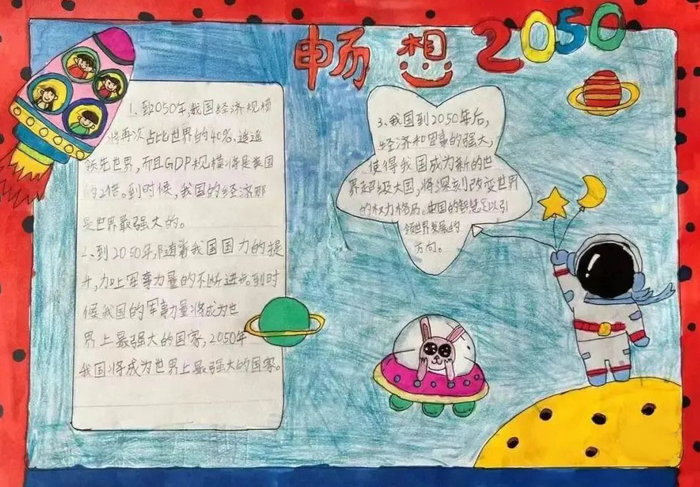 畅想2050
1、到2050年,我国经济规模
将再次占比世界的40%,遥遥
领先世界,而且GDP规模将是美国
的2倍。到时候,我国的经济那
是世界最强大的。
2、到2050年,随着我国国力的提
升,加上军事力量的不断进步。到时
候我国的军事力量将成为世
界上最强大的国家,2050年
我国将成为世界上最强大的国家。
3、我国到2050年后,
经济和军事的强大,
使得我国成为新的世
界超级大国,将深刻改变世界
的权力格局。中国的智慧足以引
领世界发展的
方向。